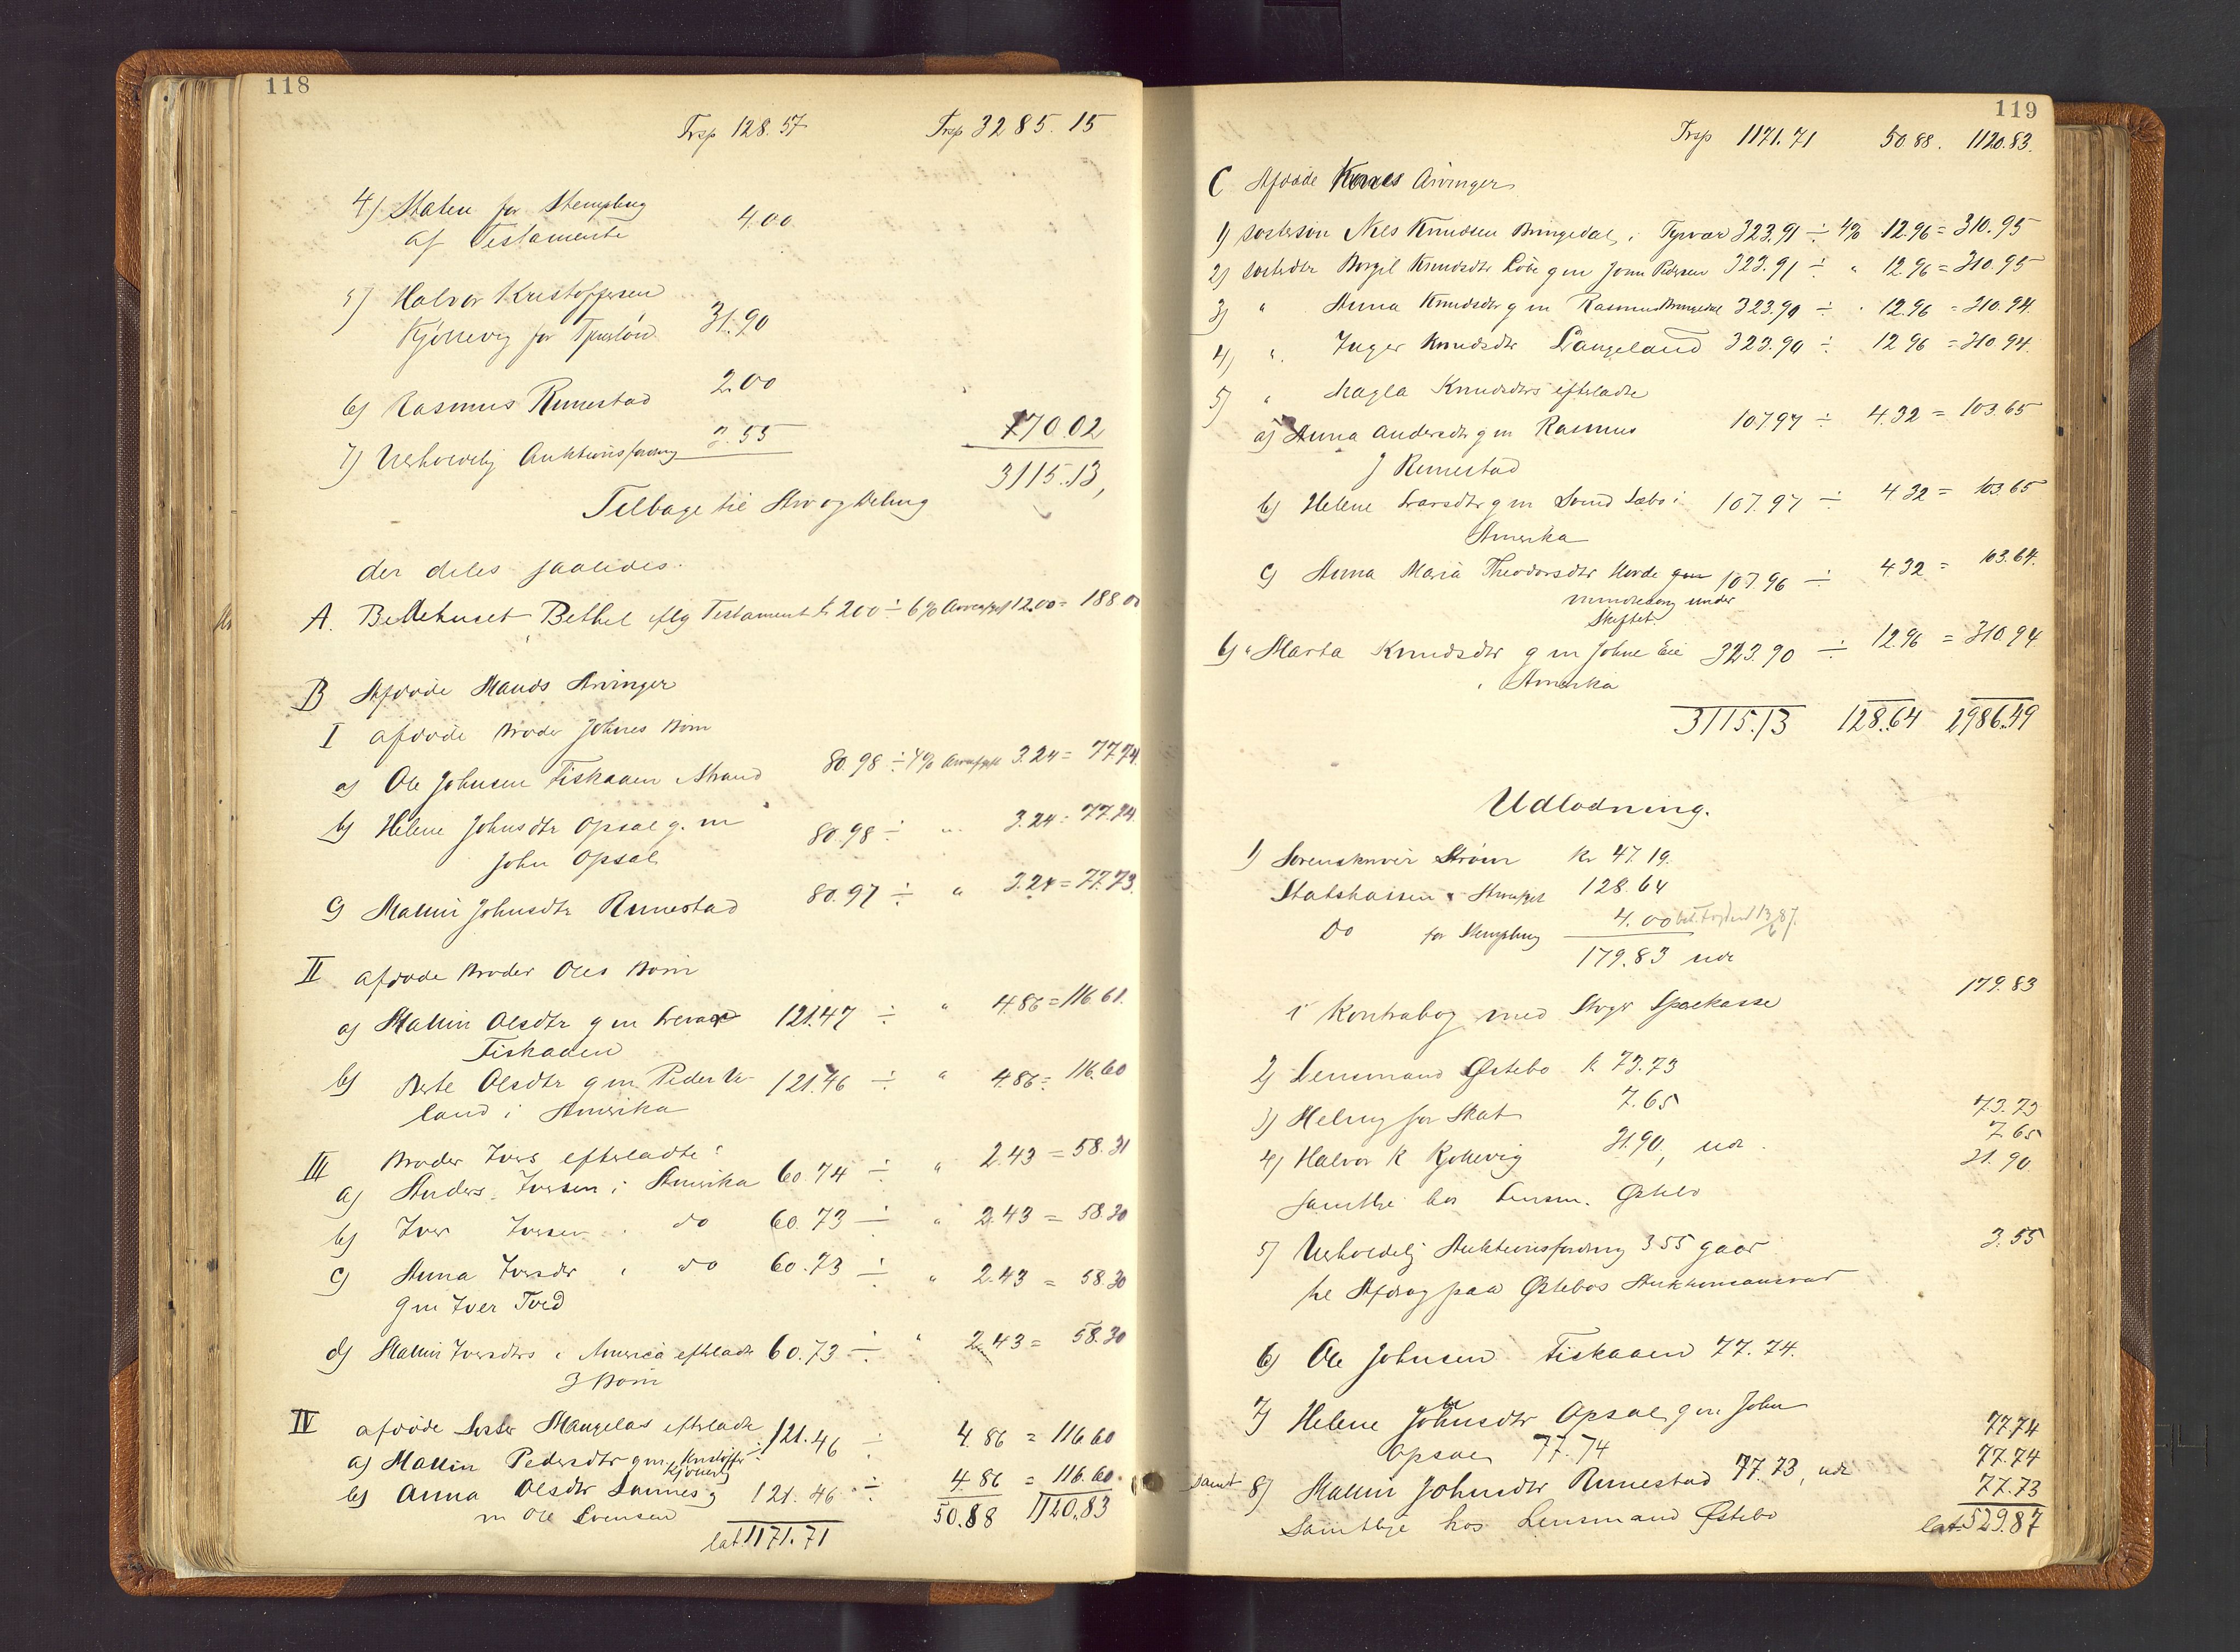 118
Trsp 128.57 Trsp 3285.15
4) Staten for Stempling
af Testamente 4.00
5) Halvor Kristoffersen
Kjøllevig for Tjenerløn 31.90
6) Rasmus Runestad 2.00
7) Uerholdelig Auktionsfordring 3.55 170.02
3115.13,
Tilbage til Arv og Deling
der deles saaledes.
A. Bedehuset Bethel iflg Testament kr 200 ÷ 6% Arveafgift 12.00 = 188.00
B Afdøde Mands Arvinger
I afdøde Broder Johnes Børn
a) Ole Johnsen Fiskaaen Strand 80.98 ÷ 4% Arveafgift 3.24 = 77.74
b) Helene Johnsdtr Opsal g. m 80.98 ÷ " 3.24 = 77.74
John Opsal
c) Mallin Johnsdtr Runestad 80.97 ÷ " 3.24 = 77.73
II afdøde Broder Oles Børn
a) Mallin Olsdtr g m 121.47 ÷ " 4.86 = 116.61
Fiskaaen
b) Berte Olsdtr g m Peder Va- 121.46 ÷ " 4.86 = 116.60
land i Amerika
III Broder Ivers efterladte:
a) Anders Iversen i Amerika 60.74 ÷ " 2.43 = 58.31
b) Iver Iversen " do 60.73 ÷ " 2.43 = 58.30
c) Anna Iversdtr " do 60.73 ÷ " 2.43 = 58.30
g m Iver Tved
d) Mallin Iversdtrs i America efterladte 60.73 ÷ " 2.43 = 58.30
3 Børn
IV afdøde Søster Mangelas efterladte
a) Mallin Pedersdtr g m Kristoffer Kjøllevig 121.46 ÷ 4.86 = 116.60
b) Anna Olsdtr Sannes g 121.46 ÷ 4.86 = 116.60
m Ole Svensen 50.88 1120.83
lat. 1171.71
119
Trsp 1171.71 50.88. 1120.83.
C Afdøde Kones Arvinger
1) Søstersøn Nils Knudsen Bringedal i Tysvær 323.91 ÷ 4% 12.96 = 310.95
2) Søsterdtr Borgil Knudsdtr g m John Pedersen 323.91 ÷ " 12.96 = 310.95
3) " Anna Knudsdtr g m Rasmus Bringedal 323.90 ÷ " 12.96 = 310.94
4) " Inger Knudsdtr Langeland 323.90 ÷ 12.96 = 310.94.
5) " Magla Knudsdtrs efterladte
a) Anna Andersdtr g m Rasmus 107.97 ÷ 4.32 = 103.65
J Runestad
b) Helene Larsdtr g m Svend Sæbø i 107.97 ÷ 4.32 = 103.65
Amerika
c) Anna Maria Theodorsdtr Horde 107.96 ÷ 4.32 = 103.64.
mindreaarig under
Skiftet.
6) " Marta Knudsdtr g m Johne Eie 323.90 ÷ 12.96 = 310.94
i Amerika
3115.13 128.64 2986.49
Udlodning.
1) Sorenskriver Strøm Kr 47.19.
Statskassen i Arveafgift 128.64
Do for Stempling 4.00
179.83 udr
i Kontrabog med Sparekasse 179.83
2) Lensmand Østebø kr 73.73 73.73
3) Helvig for Skat 7.65 7.65
4) Halvor K Kjøllevig 31.90, udr. 31.90
samtlige hos Lensm. Østebø
5) Uerholdelig Auktionsfordring 3.55 gaar 3.55
til Afdrag paa Østebøs Auktionsansvar
6) Ole Johnsen Fiskaaen 77.74. 77.74
7) Helene Johnsdtr Opsal g m John
Opsal 77.74 77.74
samt 8) Mallin Johnsdtr Runestad 77.73, udr 77.73
samtlige hos Lensmand Østebø lat. 529.87